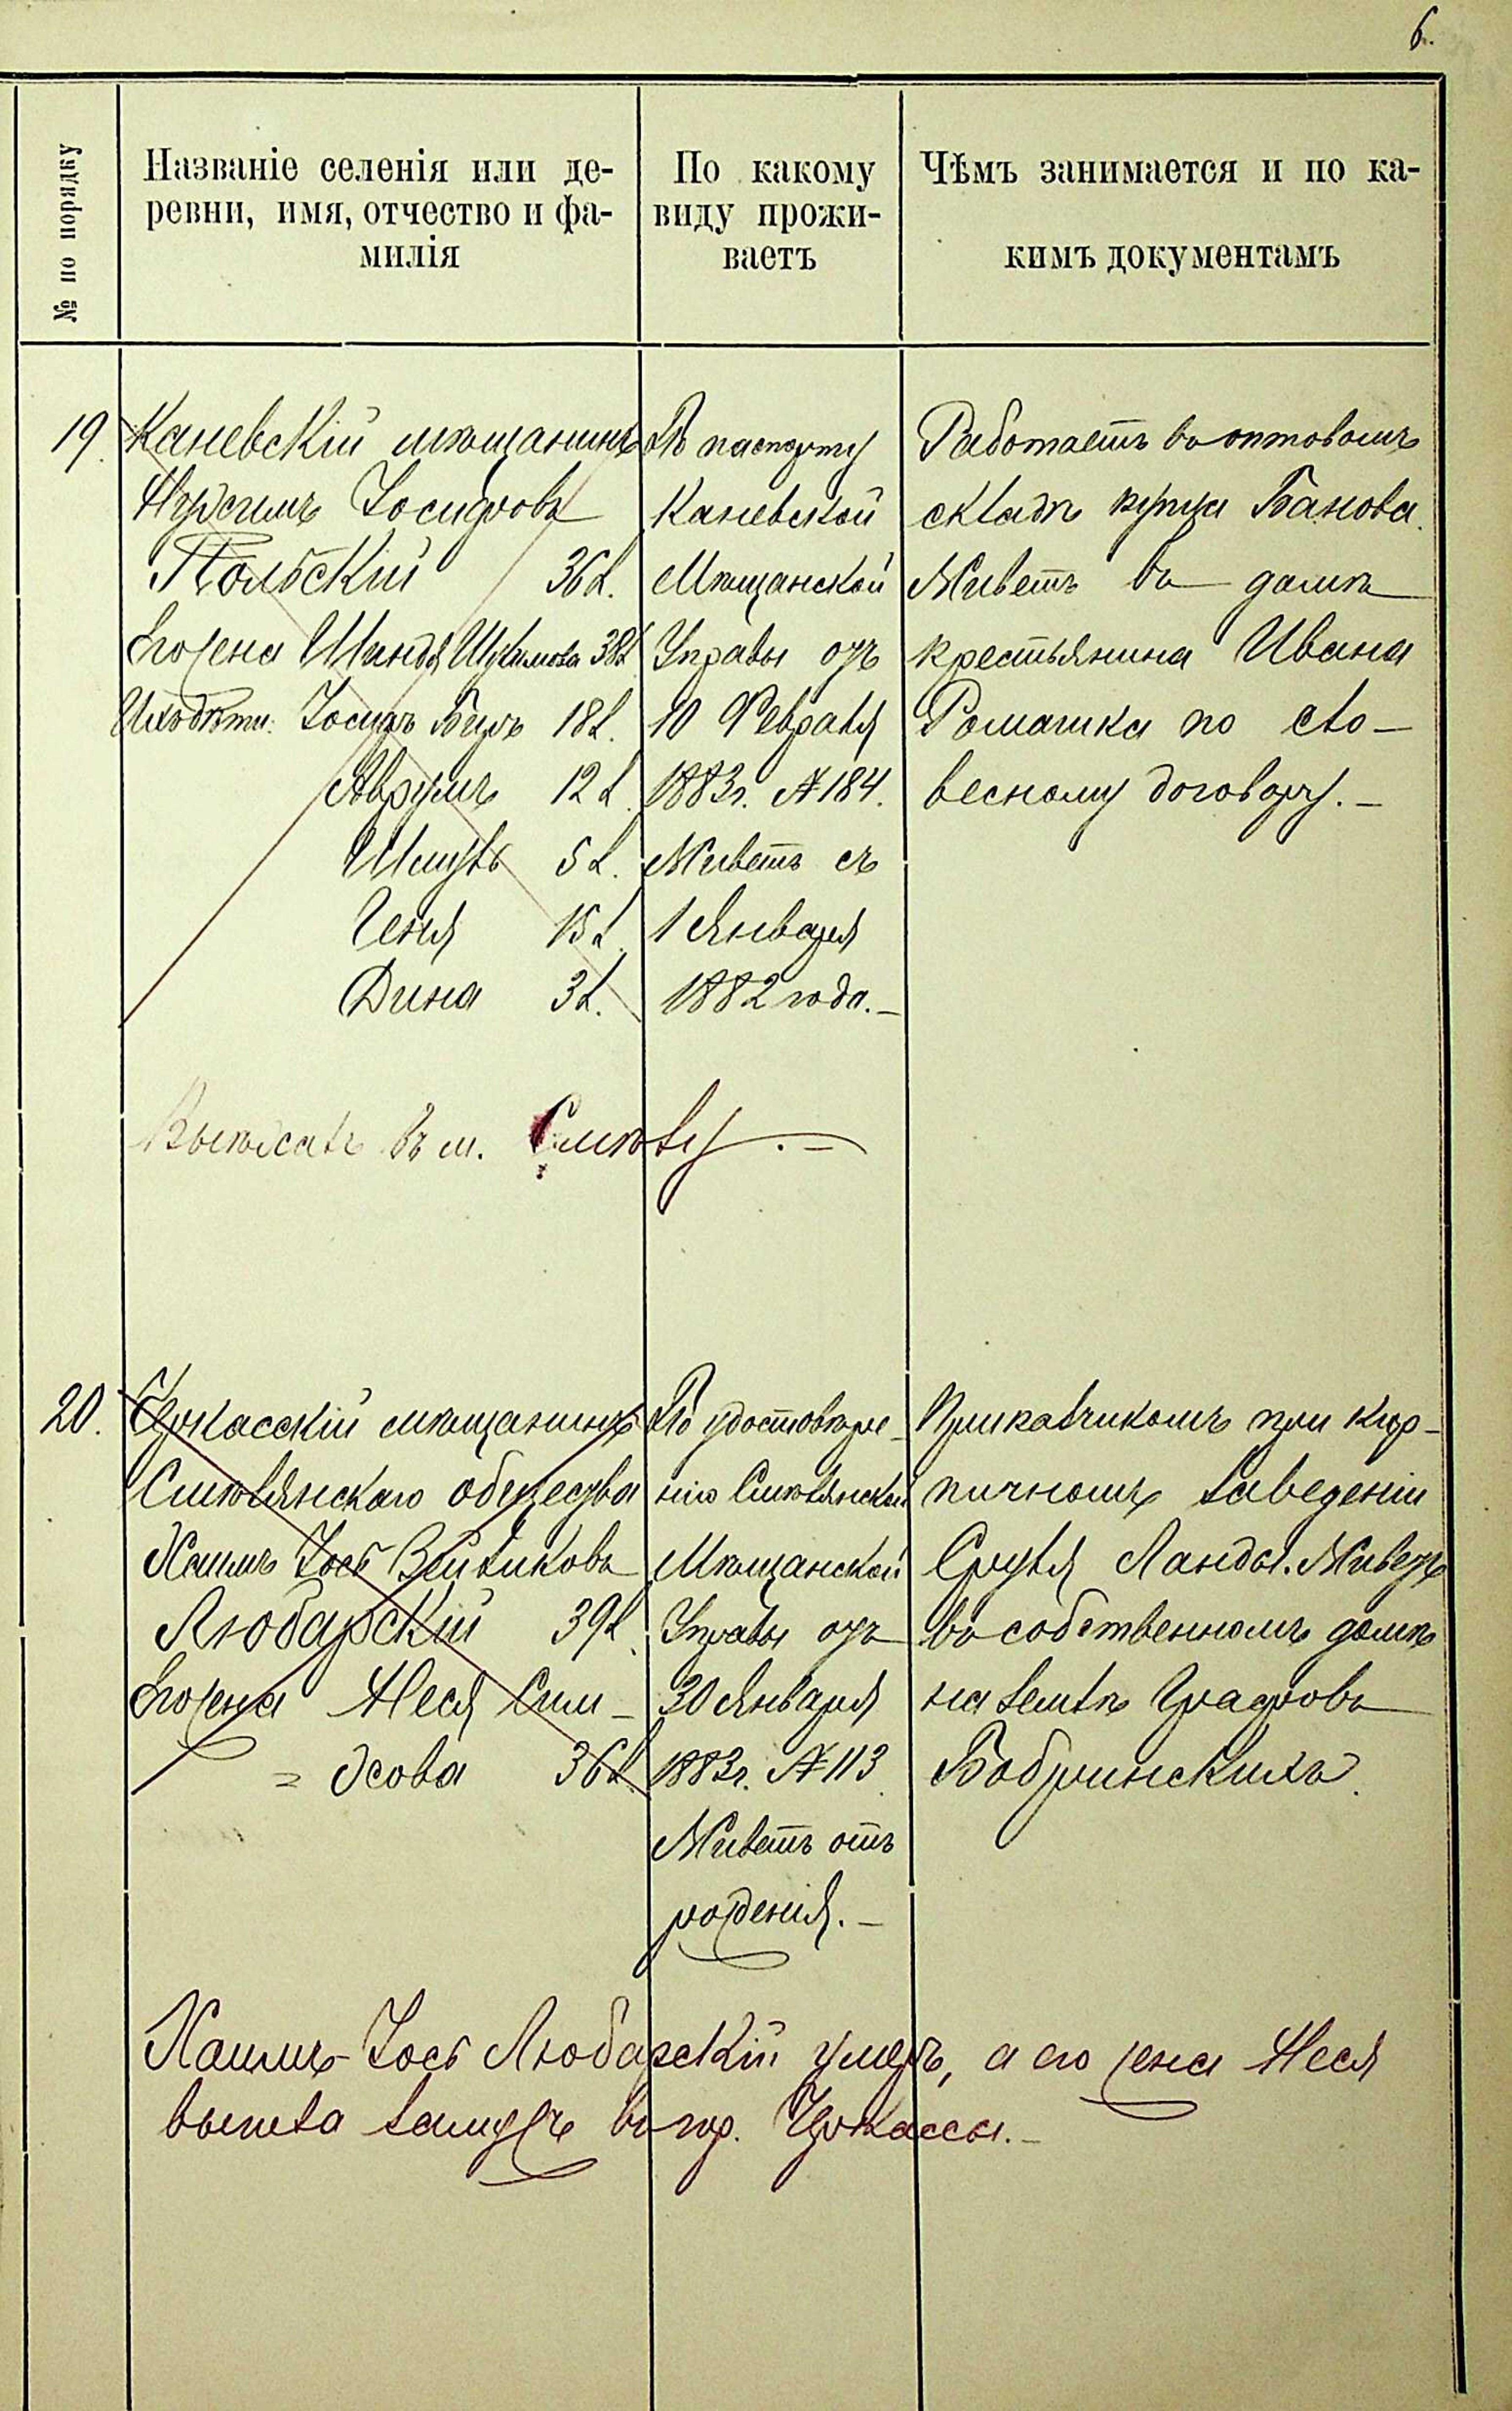 6.
№ по порядку
Названіе селенія или де-
ревни, имя, отчество и фа-
милія
По какому
виду прожи-
ваетъ
Чѣмъ занимается и по ка-
кимъ документамъ
19.
Каневскій мѣщанинъ
Нухимъ Іосифовъ
Польскій 36 л.
Его жена Шиндля 38 л.
Ихъ дѣти: Іосифъ Беръ 18 л.
Аврумъ 12 л.
Шмуль 5 л.
Геня 15 л.
Дина 3 л.
По паспорту
Каневской
Мѣщанской
Управы отъ
10 Февраля
1883 г. № 184.
Живетъ съ
1 Января
1882 года. —
Работаетъ въ оптовомъ
складѣ купца Банова.
Живетъ въ домѣ
крестьянина Ивана
Ромашка по сло-
весному договору. —
Выѣхалъ въ м. Смѣлу. —
20.
Черкасскій мѣщанинъ
Смѣлянскаго общества
Хаимъ Іось
Любарскій 39 л.
Его жена Неся Сим-
= хова 36 л.
По удостовѣре-
нію Смѣлянской
Мѣщанской
Управы отъ
30 Января
1883 г. № 113
Живетъ отъ
рожденія. —
Прикащикомъ при кир-
пичномъ заведеніи
Сруля Ланды. Живетъ
въ собственномъ домѣ
на землѣ Графовъ
Бобринскихъ.
Хаимъ-Іось Любарскій умеръ, а его жена Неся
вышла замужъ въ гор. Черкассы. —